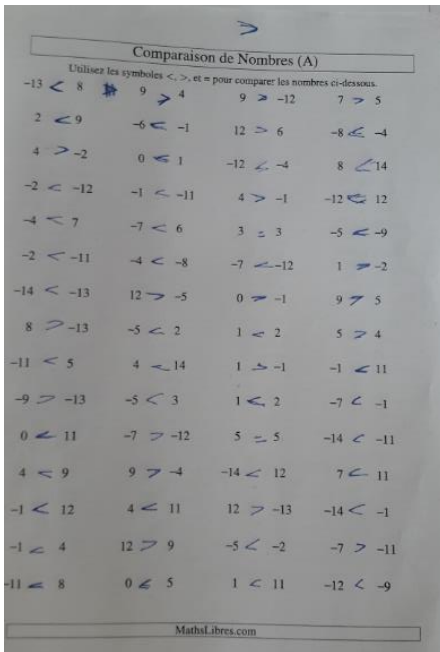 >
Comparaison de Nombres (A)
Utilisez les symboles <, >, et = pour comparer les nombres ci-dessous.
-13 < 8 9 > 4 9 > -12 7 > 5
2 < 9 -6 < -1 12 > 6 -8 < -4
4 > -2 0 < 1 -12 < -4 8 < 14
-2 < -12 -1 < -11 4 > -1 -12 < 12
-4 < 7 -7 < 6 3 = 3 -5 < -9
-2 < -11 -4 < -8 -7 < -12 1 > -2
-14 < -13 12 > -5 0 > -1 9 > 5
8 > -13 -5 < 2 1 < 2 5 > 4
-11 < 5 4 < 14 1 > -1 -1 < 11
-9 > -13 -5 < 3 1 < 2 -7 < -1
0 < 11 -7 > -12 5 = 5 -14 < -11
4 < 9 9 > -4 -14 < 12 7 < 11
-1 < 12 4 < 11 12 > -13 -14 < -1
-1 < 4 12 > 9 -5 < -2 -7 > -11
-11 < 8 0 < 5 1 < 11 -12 < -9
MathsLibres.com